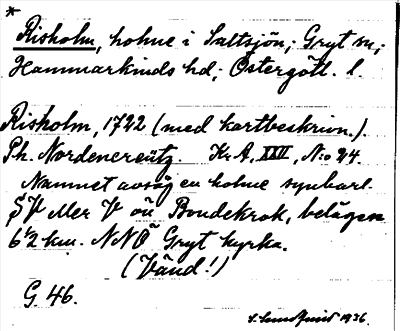 *
Risholm, holme i Saltsjön; Gryt sn;
Hammarkinds hd; Östergötl. l.
Risholm, 1722 (med kartbeskrivn.).
Ph. Nordencreutz. Kr. A. XXII, N:o 24.
Namnet avsåg en holme synbarl.
SV eller V om Bondekrok, belägen
6½ km. NNÖ Gryt kyrka.
(Vänd!)
G. 46.
S. Lundqvist 1936.